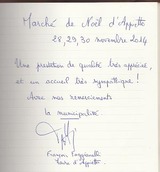 Marché de Noël d'Appietto
28, 29, 30 novembre 2014
Une prestation de qualité très appréciée,
et un accueil très sympathique !
Avec nos remerciements
la municipalité
François Faggianelli
Maire d'Appietto